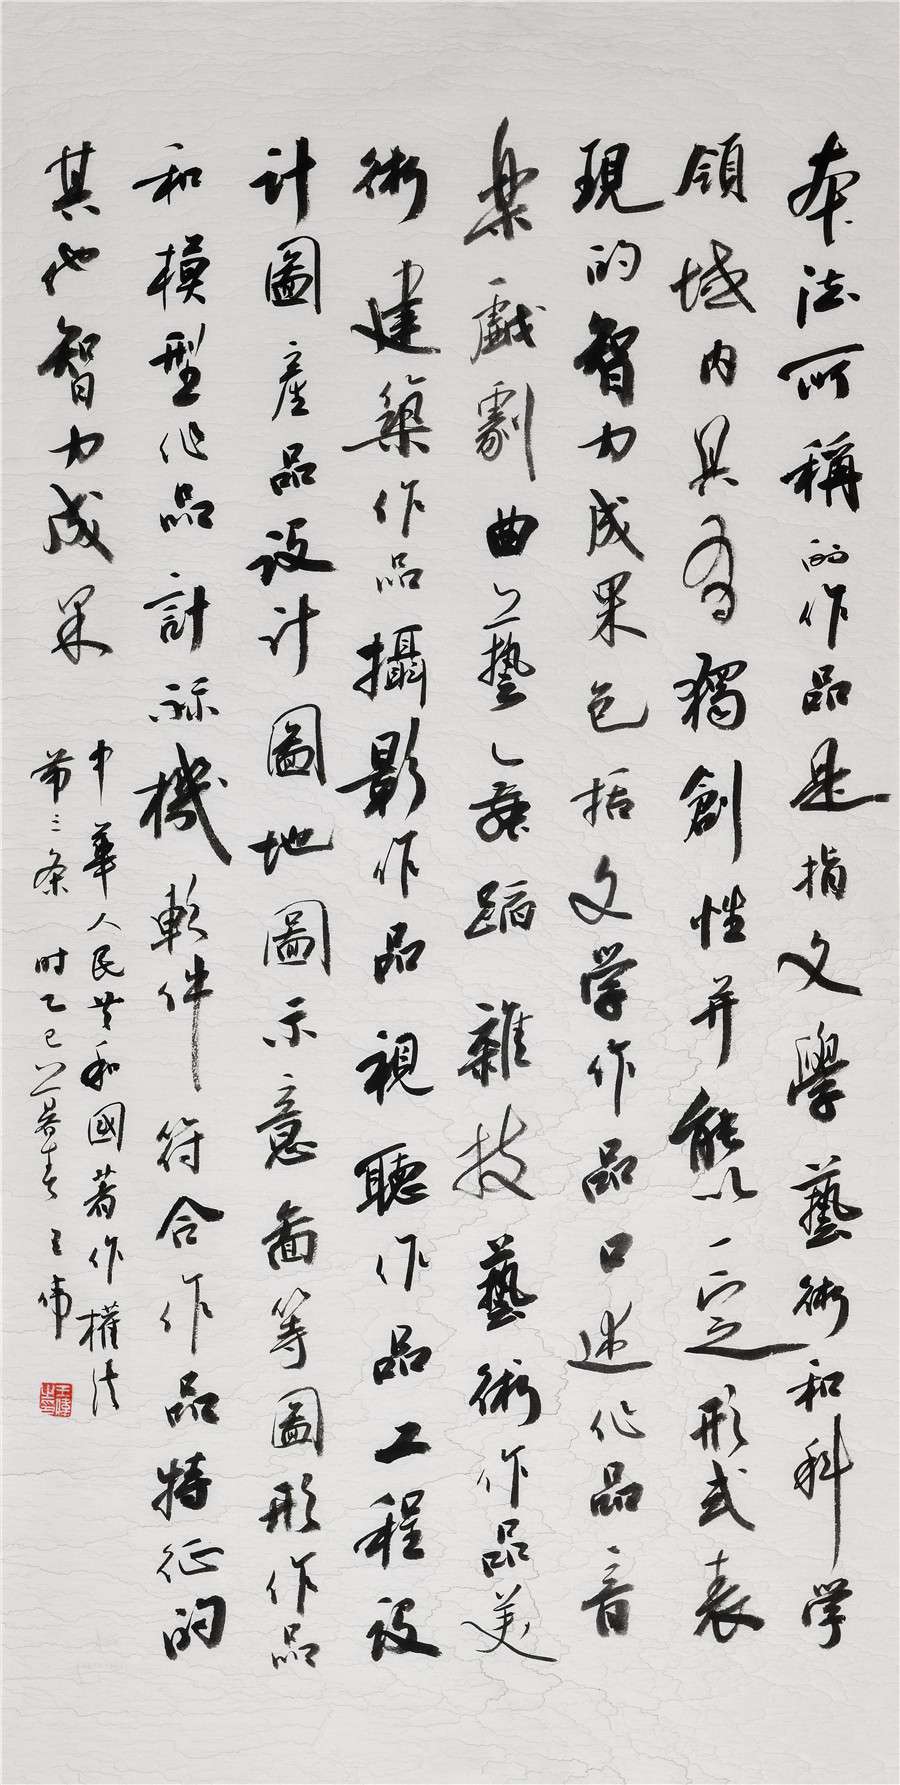 本法所稱的作品是指文學藝術和科学
領域内具有獨創性并能以一定形式表
現的智力成果包括文学作品口述作品音
樂戲劇曲藝舞蹈雜技藝術作品美
術建築作品攝影作品視聽作品工程設
计圖產品設计圖地圖示意圖等圖形作品
和模型作品計祘機軟件符合作品特征的
其他智力成果
中華人民共和國著作權法
第三条時乙巳暮春王偉